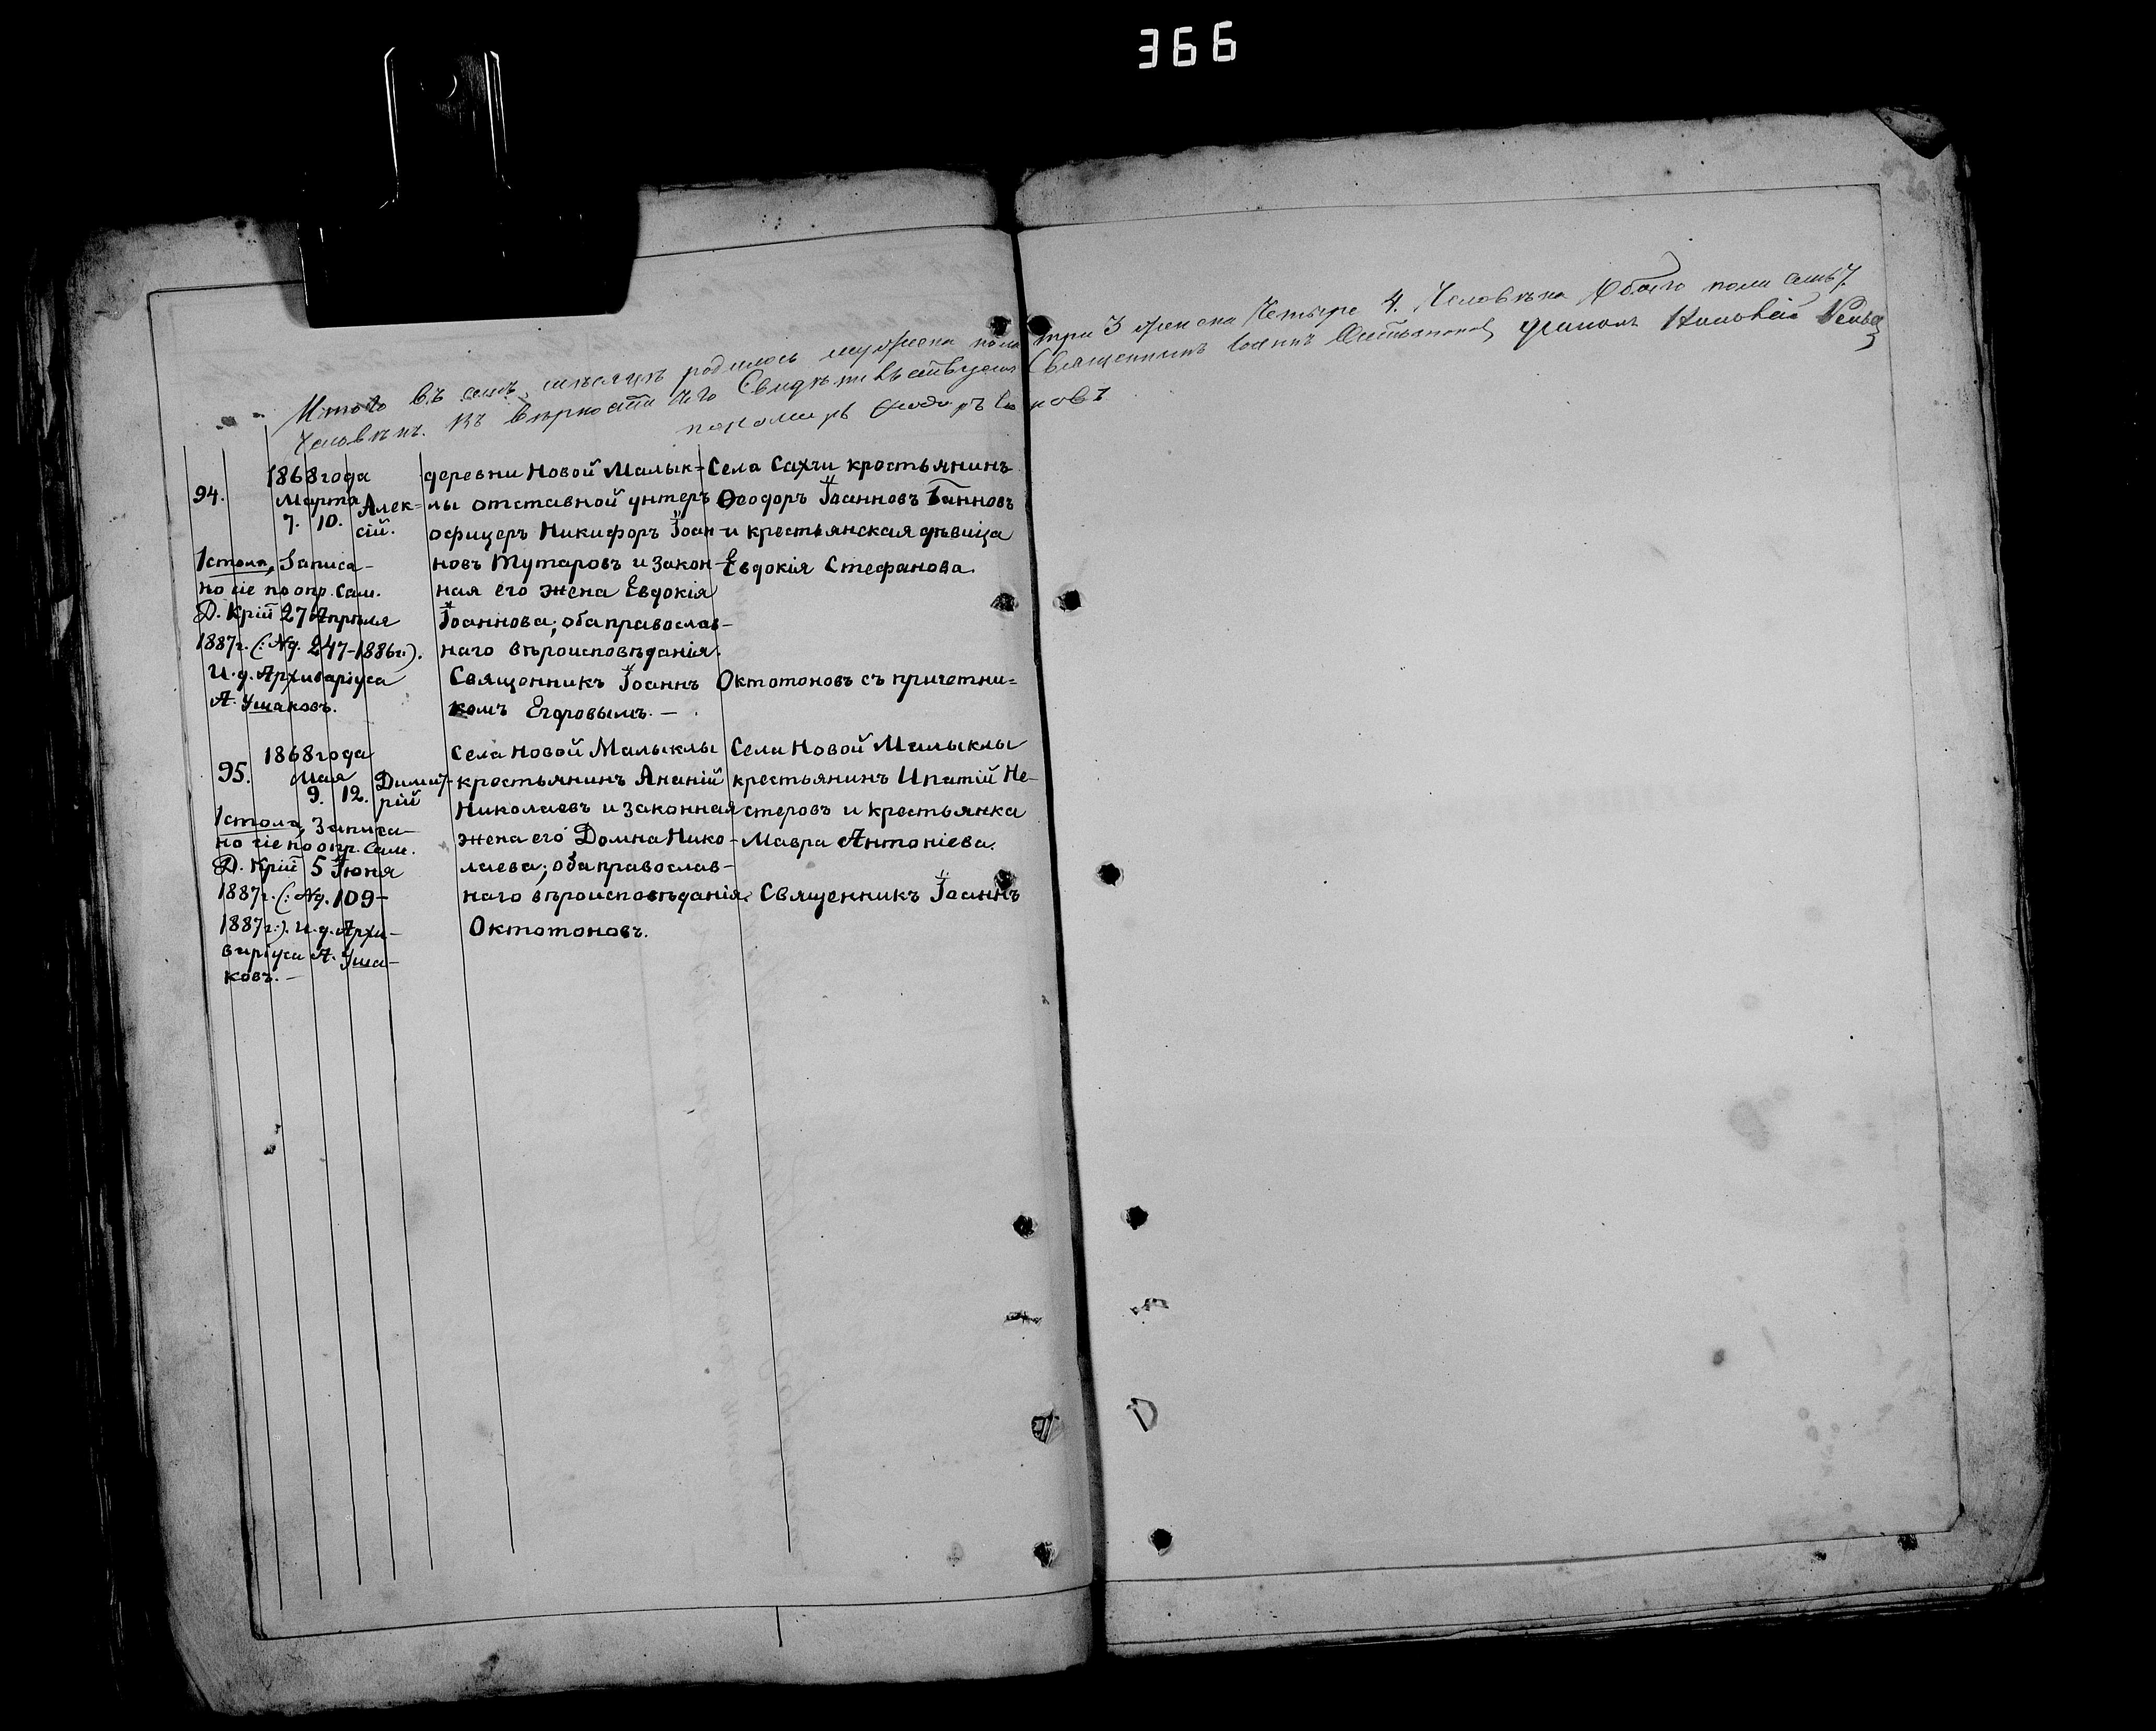 366
Итого въ семъ мѣсяцѣ родилось мужеска пола три 3 женска четыре 4. Человѣка Обоего пола семь 7.
Человѣкъ. Къ вѣрности чего Свидѣтельствуемъ Священникъ Іоаннъ Октотоновъ
пономарь
94.
1868 года
Марта
7. 10.
Алек-
сій.
деревни Новой Малык-
лы отставной унтеръ
офицеръ Никифоръ Іоан
новъ Тутаровъ и закон-
ная его жена Евдокія
Іоаннова; оба православ-
наго вѣроисповѣданія.
Села Сахчи крестьянинъ
Ѳеодоръ Іоанновъ
и крестьянская дѣвица
Евдокія Стефанова.
Священникъ Іоаннъ Октотоновъ съ причетни=
комъ Егоровымъ. —
1 стола, Записа-
но сіе по опр. Сам.
Д. Кріи 27 Апрѣля
1887г. (: №. 247-1886г:).
И. д. Архиваріуса
А. Ушаковъ.
95.
1868 года
Мая
9. 12.
Димит-
рій
Села Новой Малыклы
крестьянинъ Ананій
Николаевъ и законная
жена его Домна Нико-
лаева; оба православ-
наго вѣроисповѣданія.
Села Новой Малыклы
крестьянинъ Ипатій Не-
стеровъ и крестьянка
Мавра Антоніева.
Священникъ Іоаннъ
Октотоновъ.
1 стола, Записа-
но сіе по опр. Сам.
Д. Кріи 5 Іюня
1887г. (: №. 109-
1887г:). И. д. Архи-
варіуса А. Уша-
ковъ. —